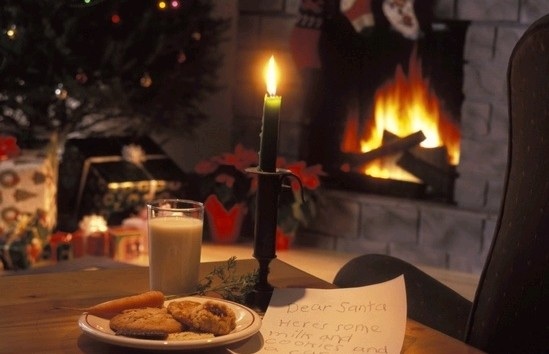 Dear Santa
Heres some
milk and
cookies and
a